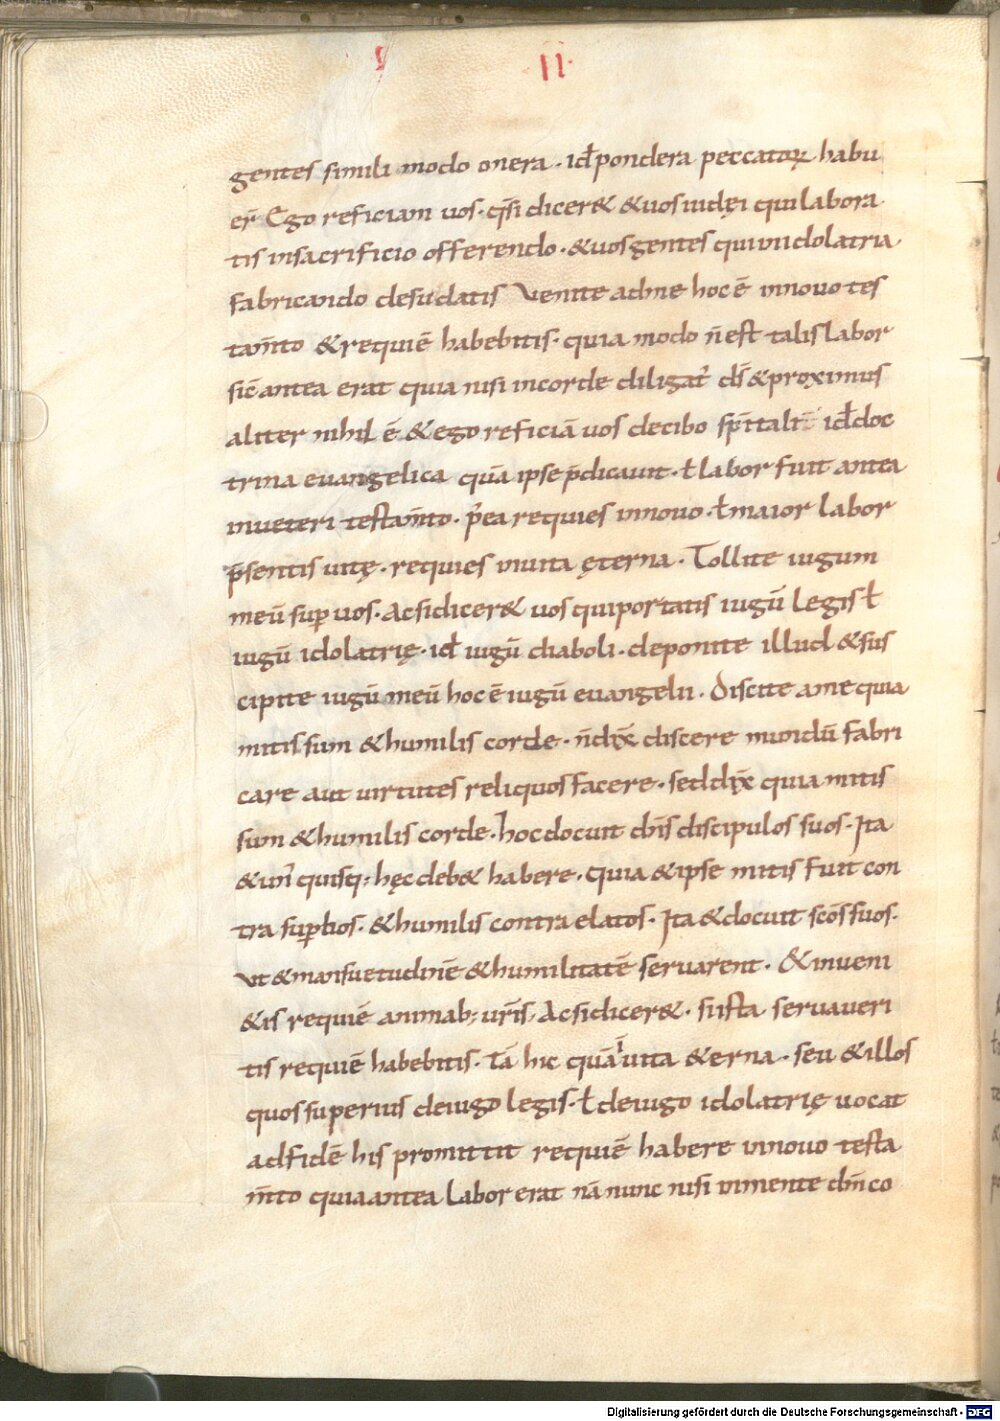 II·
gentes simili modo onera · id÷ pondera peccatoꝝ habu
er̄ Ego reficiam uos · q̄si dicer& & uos iudęi qui labora
tis insacrificio offerendo · & uos gentes qui in idolatria
fabricando desudatis Venite adme hoc ē innouo tes
tam̄to & requiē habebitis · quia modo n̄ est talis labor
sic̄ antea erat quia nisi incorde diligat᷑ d̄s & proximus
aliter nihil ē & ego reficiā uos decibo sp̄italī id÷ doc
trina euangelica quā ipse p̄dicauit · ł labor fuit antea
inueteri testam̄to · p̄ea requies innouo · ł maior labor
p̄sentis uitę · requies inuita ęterna · Tollite iugum
meū sup̄ uos · Acsi dicer& uos qui portatis iugū legis ł
iugū idolatrię · id÷ iugū diaboli · deponite illud & sus
cipite iugū meū hoc ē iugū euangelii · Discite ame quia
mitis sum & humilis corde · n̄ dix̄ discere mundū fabri
care aut uirtutes reliquos facere · sed dix̄ quia mitis
sum & humilis corde · hoc docuit dn̄s discipulos suos · Ita
& un̄ quisq; hęc deb& habere · Quia & ipse mitis fuit con
tra sup̄bos · & humilis contra elatos · Ita & docuit sc̄os suos ·
Vt & mansuetudinē & humilitatē seruarent · & inueni
&is requiē animab; ur̄is, Acsi dicer& · si ista seruaueri
tis requiē habebitis · Tā hic quā iuita &erna · seu & illos
quos superius deiugo legis · ł deiugo idolatrię uocat
adfidē his promittit requiē habere innouo testa
m̄to quia antea labor erat nā nunc nisi inmente dn̄ico
Digitalisierung gefördert durch die Deutsche Forschungsgemeinschaft - DFG